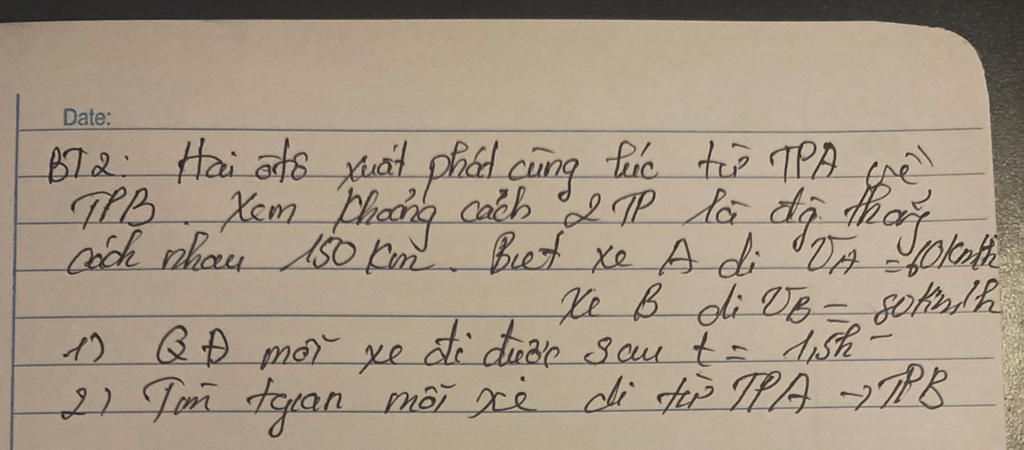 Date:
BT2: Hai ôtô xuất phát cùng lúc từ TPA về
TPB. Xem khoảng cách 2 TP là đg thẳng
cách nhau 150 Km. Biết xe A đi VA = 60km/h
xe B đi VB = 80km/h
1) QĐ mỗi xe đi được sau t = 1,5h
2) Tìm tgian mỗi xe đi từ TPA → TPB